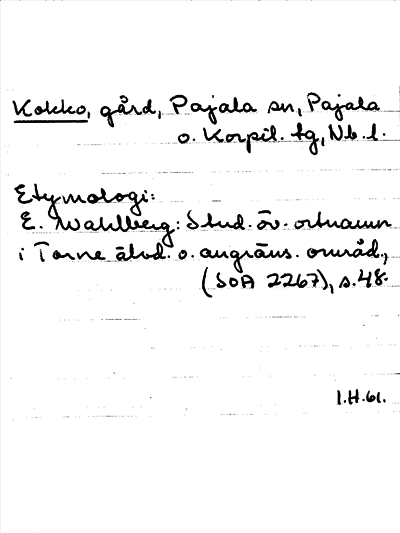 Kokko, gård, Pajala sn, Pajala
o. Korpil. tg, Nb. l.
Etymologi:
E. Wahlberg: Stud. öv. ortnamn
i Torne älvd. o. angräns. områd.,
(SOA 2267), s. 48.
I.H. 61.